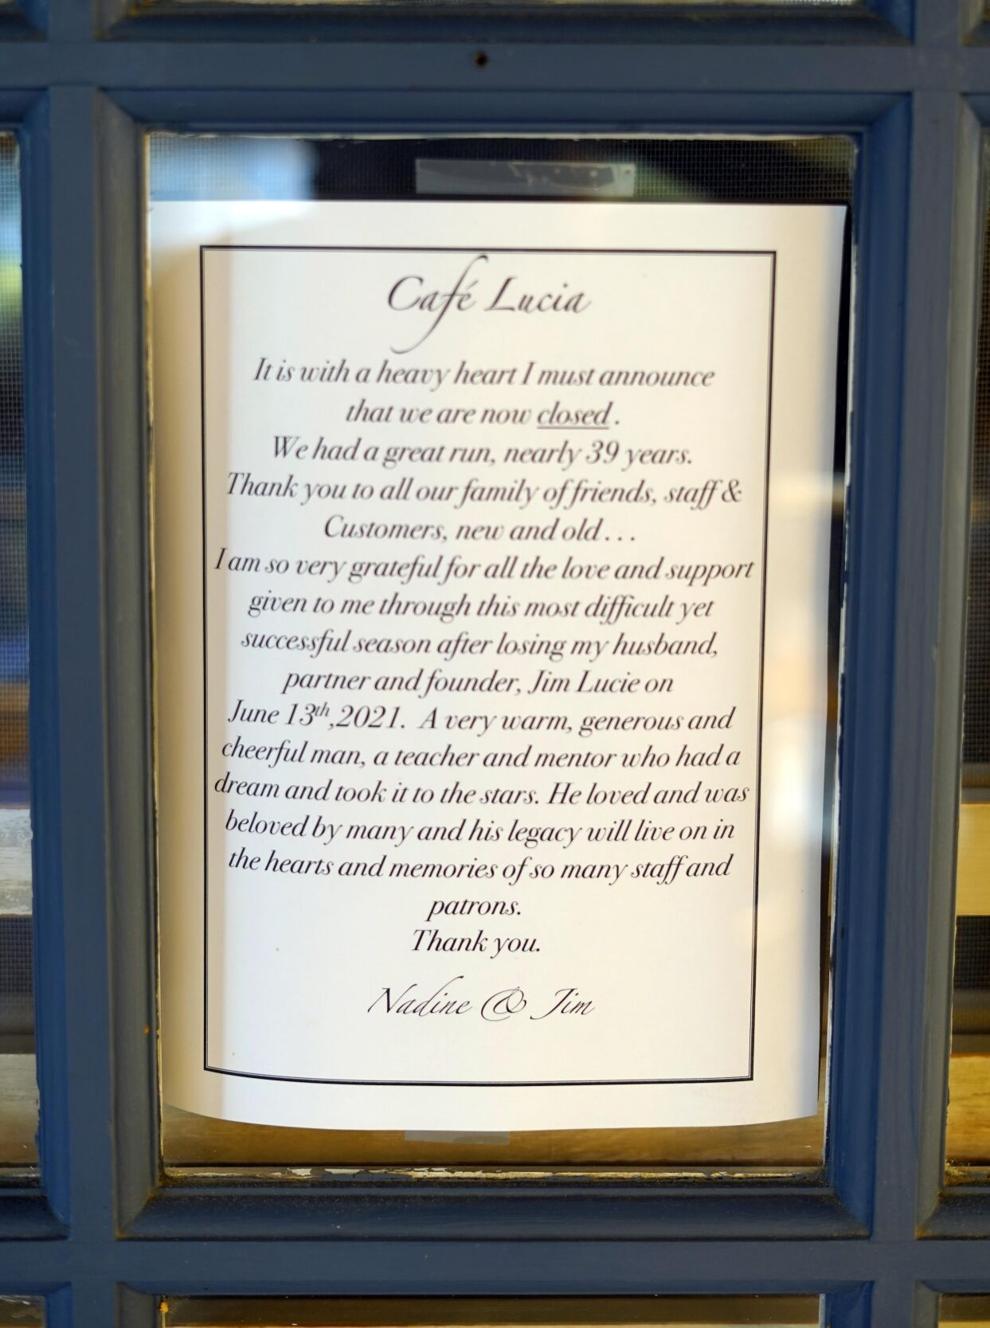 Café Lucia
It is with a heavy heart I must announce
that we are now closed .
We had a great run, nearly 39 years.
Thank you to all our family of friends, staff &
Customers, new and old . . .
I am so very grateful for all the love and support
given to me through this most difficult yet
successful season after losing my husband,
partner and founder, Jim Lucie on
June 13th,2021. A very warm, generous and
cheerful man, a teacher and mentor who had a
dream and took it to the stars. He loved and was
beloved by many and his legacy will live on in
the hearts and memories of so many staff and
patrons.
Thank you.
Nadine & Jim